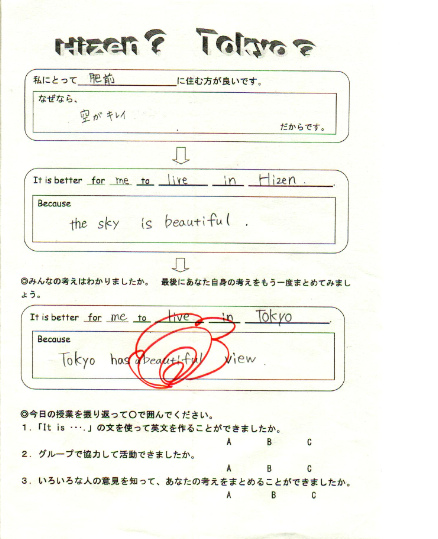 Hizen? Tokyo?
私にとって 肥前 に住む方が良いです。
なぜなら、
空がキレイ
だからです。
It is better for me to live in Hizen.
Because
the sky is beautiful.
◎みんなの考えはわかりましたか。 最後にあなた自身の考えをもう一度まとめてみまし
ょう。
It is better for me to live in Tokyo
Because
Tokyo has a beautiful view.
◎今日の授業を振り返って○で囲んでください。
1.「It is ….」の文を使って英文を作ることができましたか。
A B C
2.グループで協力して活動できましたか。
A B C
3.いろいろな人の意見を知って、あなたの考えをまとめることができましたか。
A B C